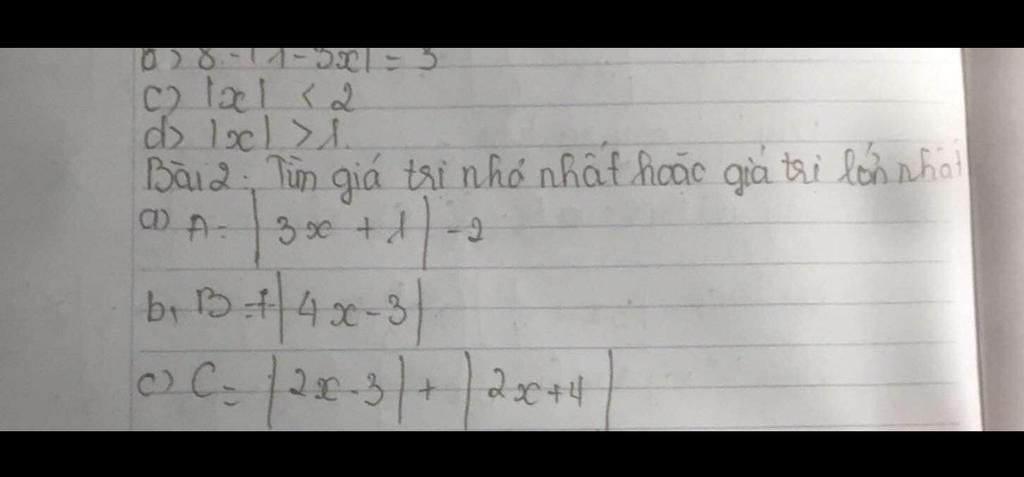 8 - |1 - 3x| = 3
c) |x| < 2
d) |x| > 1.
Bài 2: Tìm giá trị nhỏ nhất hoặc giá trị lớn nhất
a) A = |3x + 1| - 2
b, B = |4x - 3|
c) C = |2x - 3| + |2x + 4|